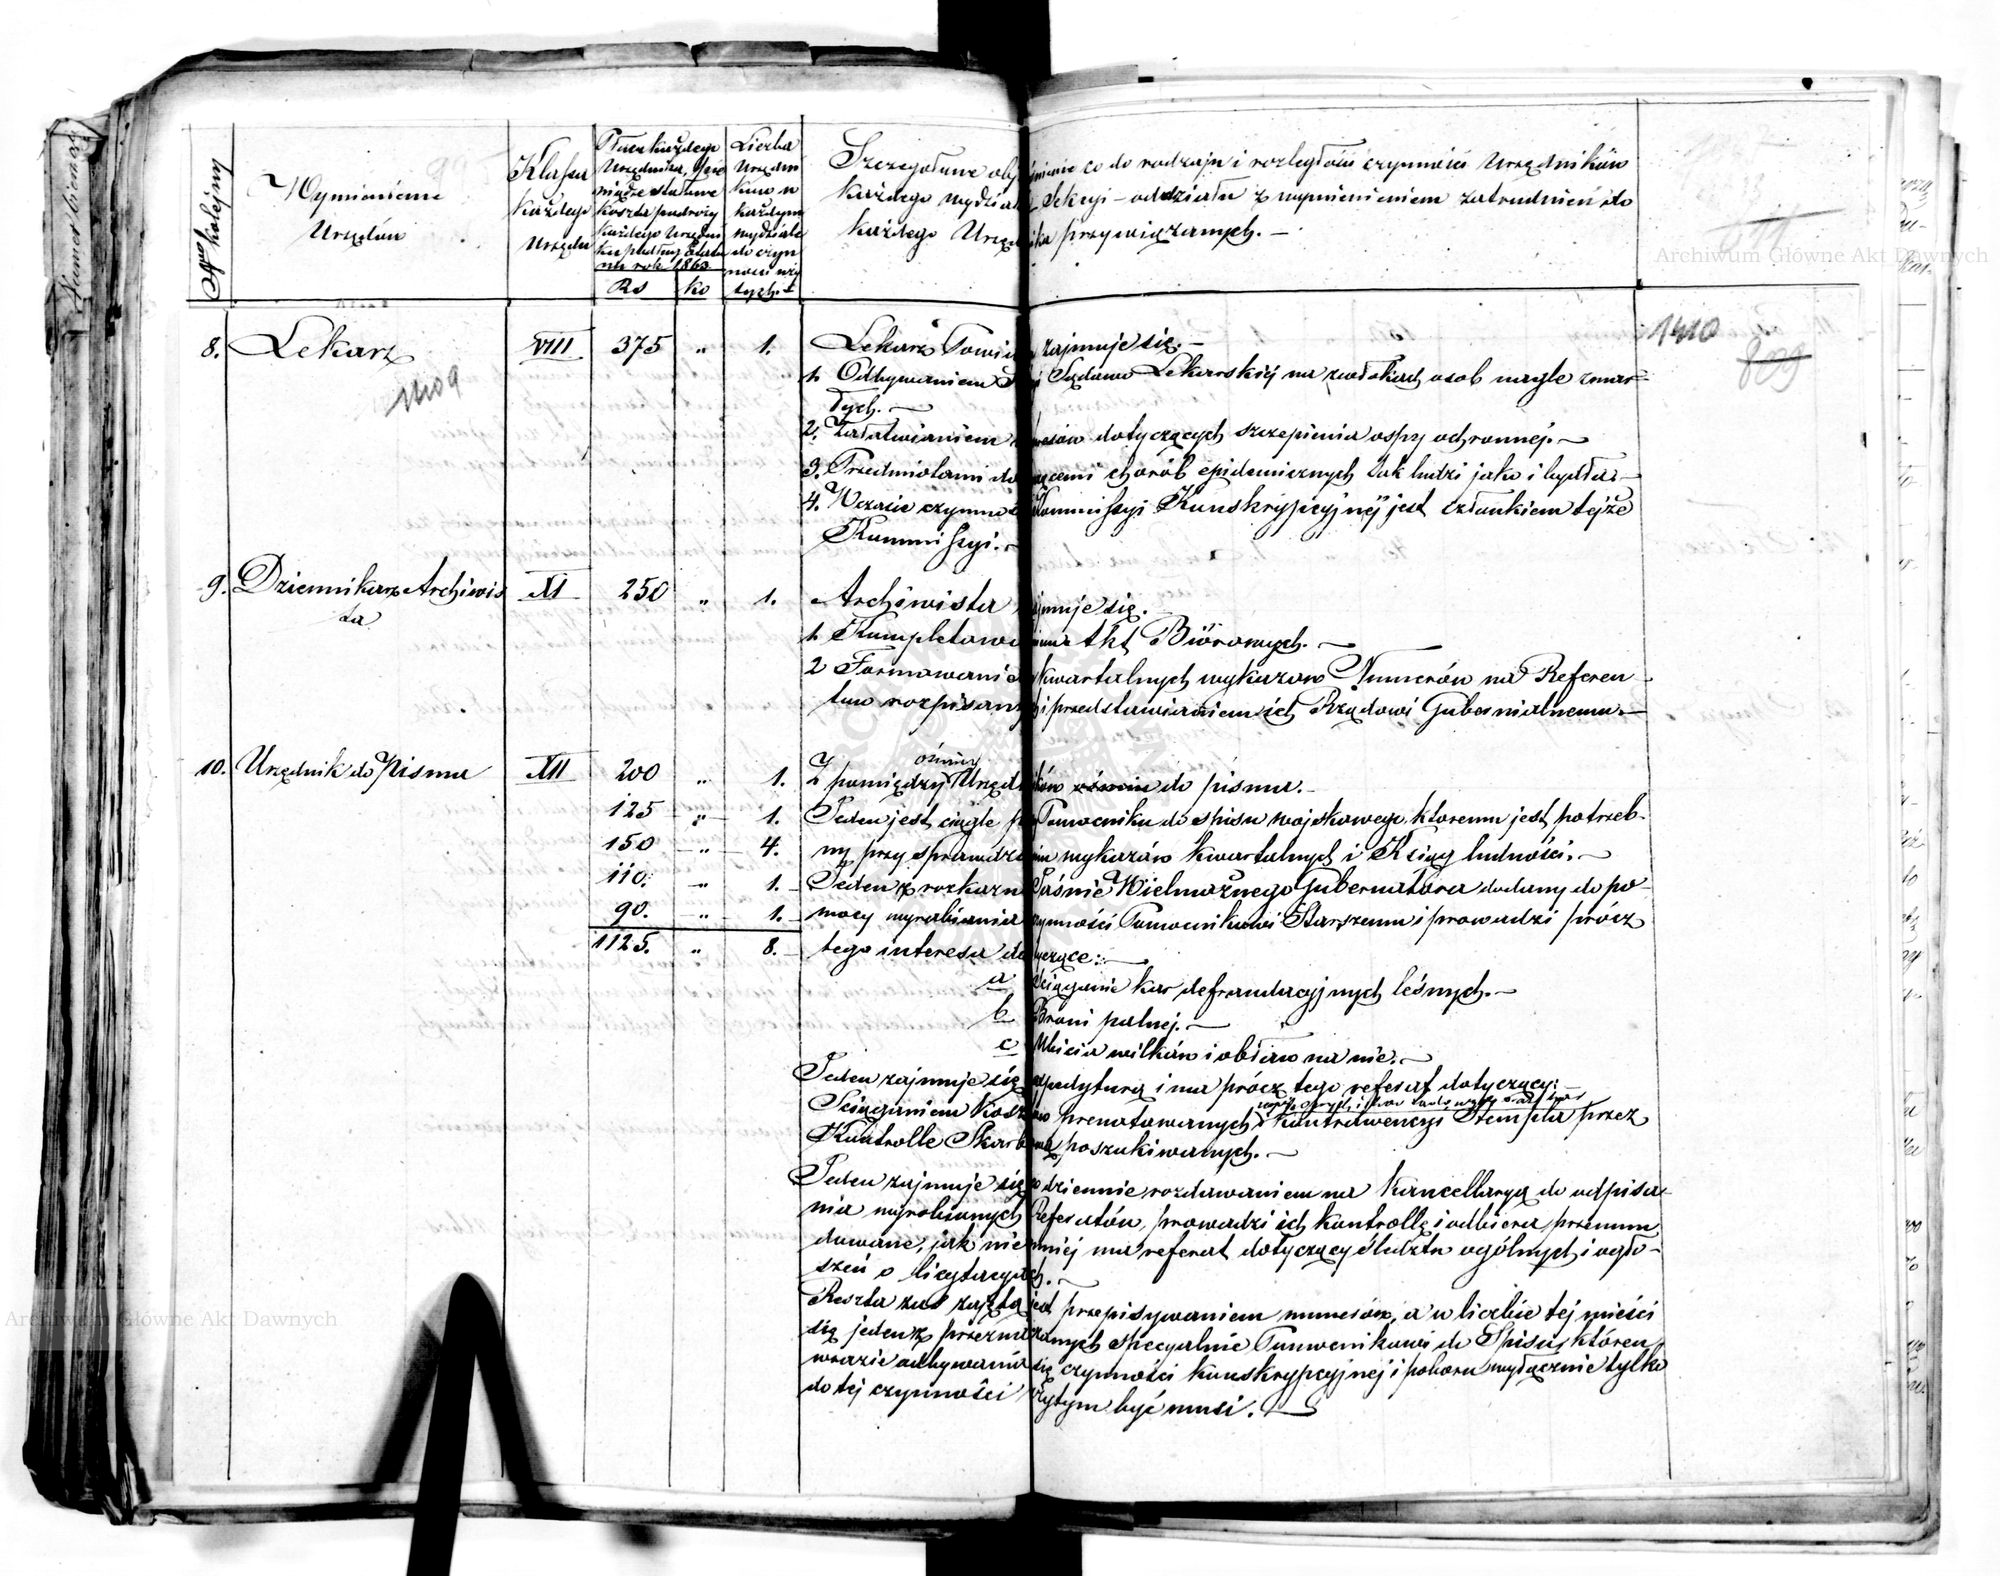 Nro kolejny
Wymienienie
Urzędów
Klassa
każdego
Urzędu
Płaca każdego
Urzędnika, tudzież
koszta podróży
każdego Urzędni
ka podług Etatu
na rok 1863
Rs ko
Liczba
Urzędni
ków w
każdym
wydziale
do czyn
ności uży
tych.
Szczegółowe objaśnienie co do rodzaju i rozległości czynności Urzędników
każdego wydziału, Sekcyi - oddziału z wymienieniem zatrudnień do
każdego Urzędnika przywiązanych. —
Archiwum Główne Akt Dawnych
8. Lekarz VIII 375 " 1. Lekarz Powiatu zajmuje się: —
1410
809
1409
1. Odbywaniem Sekcyi Sądowo Lekarskiéj na zwłokach osob nagle zmar-
łych. —
2. Załatwianiem interesów dotyczących szczepienia ospy ochronnej. —
3. Przedmiotami dotyczącemi chorób epidemicznych tak ludzi jako i bydła. —
4. W czasie czynności Kommissyi Konskrypcyjnéj jest członkiem tejże
Kommissyi. —
9. Dziennikarz Archiwis XI 250 " 1. Archiwista zajmuje się.
ta
1. Kompletowaniem Akt Biórowych. —
2 Formowaniem kwartalnych wykazów Numerów na Referen
tów rozpisanych i przedstawianiem ich Rządowi Gubernialnemu. —
10. Urzędnik do Pisma XII 200 " 1. Z pomiędzy ośmiu Urzędników ośmiu do pisma. —
125 " 1. Jeden jest ciągle przy Pomocniku do spisu wojskowego, ktoremu jest potrzeb-
150 " 4. ny przy sprawdzeniu wykazów kwartalnych i Ksiąg ludności. —
110. " 1. Jeden z rozkazu Jaśnie Wielmożnego Gubernatora dodany do po-
90. " 1. mocy wyrabiania czynności Pomocnikowi Starszemu i prowadzi prócz
1125. " 8. tego interesa dotyczące: —
a Ściąganie kar defraudacyjnych leśnych. —
b Broni palnej. —
c Ubicia wilków i obław na nie. —
Jeden zajmuje się expedyturą i ma prócz tego referat dotyczący: —
Ściąganiem Kosztów prenotowanych i Kontrawencyi Stempla przez
Kontrolle Skarbową poszukiwanych. —
Jeden zajmuje się codziennie rozdawaniem na Kancellaryą do odpisa-
nia wyrobionych Referatów, prowadzi ich kontrollę i odbiera przemun
dowane, jak niemniej ma referat dotyczący śledztw ogólnych i ogło-
szeń o licytacyach. —
Reszta zaś zajęta jest przepisywaniem numerów, a w liczbie tej mieści
się jeden z przeznaczonych specyalnie Pomocnikowi do Spisu, któren
w razie odbywania się czynności konskrypcyjnéj i poboru wyłącznie tylko
do tej czynności użytym być musi. —
Archiwum Główne Akt Dawnych